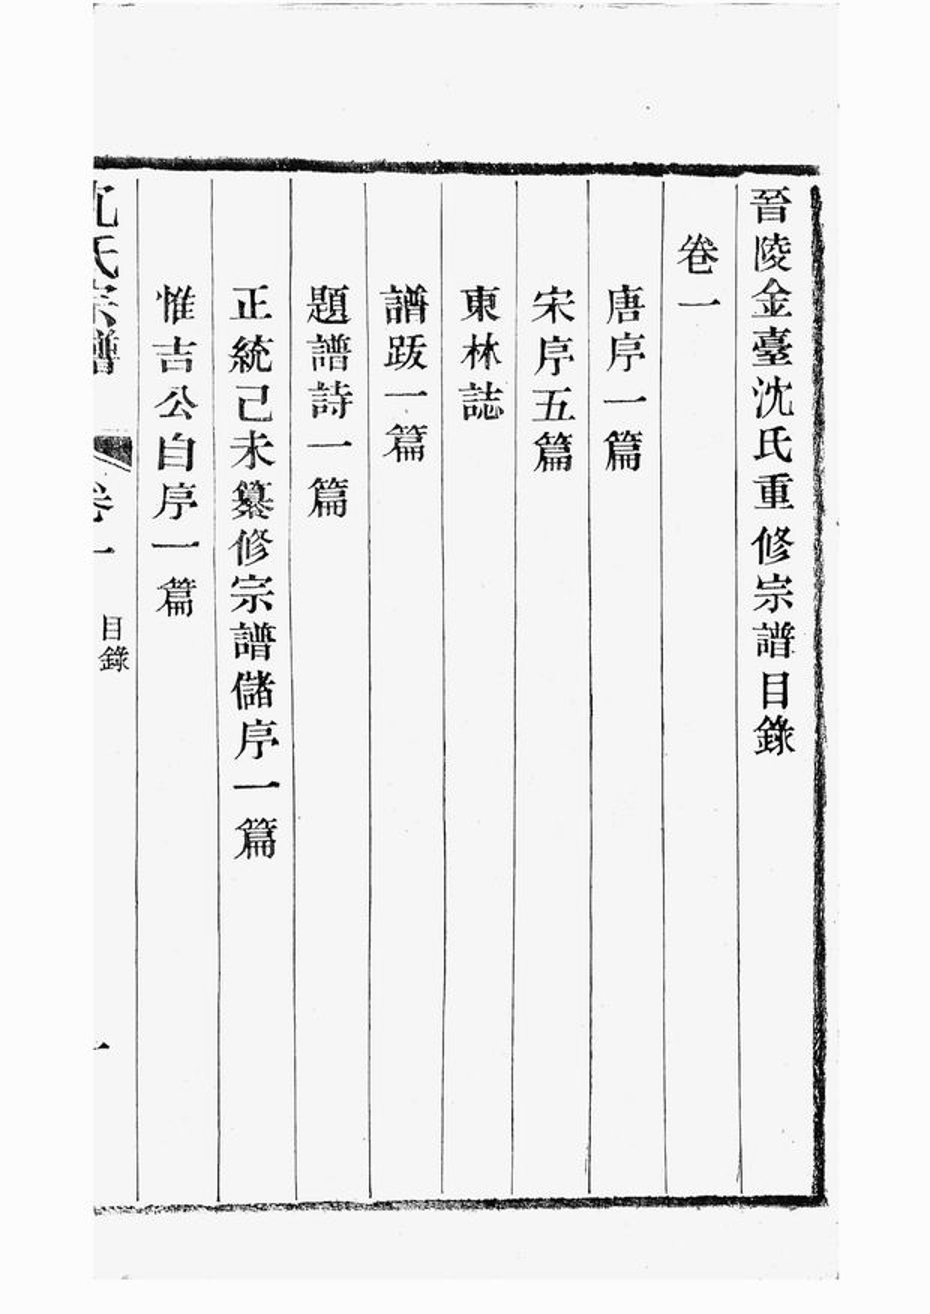 晉陵金臺沈氏重修宗譜目錄
卷一
唐序一篇
宋序五篇
東林誌
譜跋一篇
題譜詩一篇
正統己未纂修宗譜儲序一篇
惟吉公自序一篇
沈氏宗譜
卷一
目錄
一